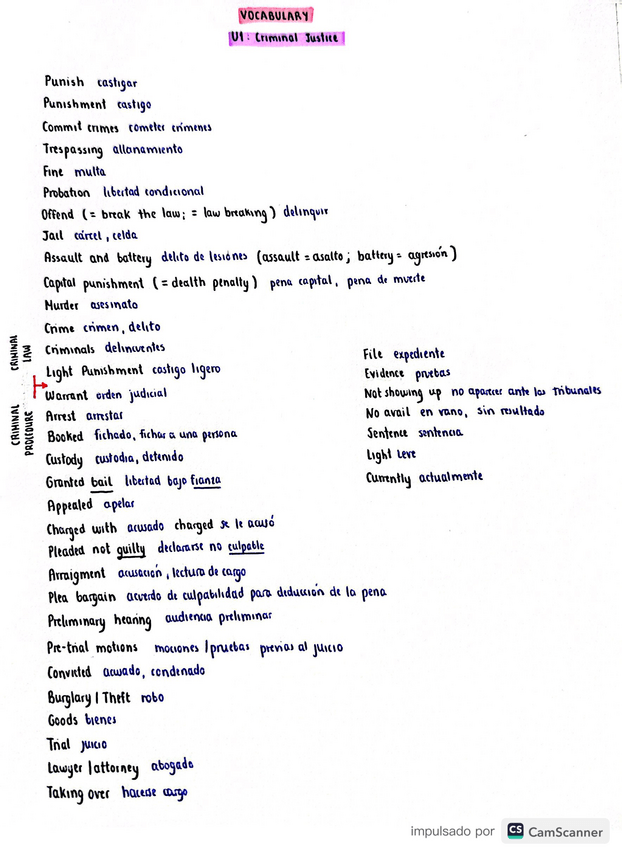 VOCABULARY
U1: Criminal Justice
Punish castigar
Punishment castigo
Commit crimes cometer crímenes
Trespassing allanamiento
Fine multa
Probation libertad condicional
Offend (= break the law; = law breaking) delinquir
Jail cárcel, celda
Assault and battery delito de lesiones (assault = asalto; battery = agresión)
Capital punishment (= dealth penalty) pena capital, pena de muerte
Murder asesinato
Crime crimen, delito
Criminals delincuentes
Light Punishment castigo ligero
CRIMINAL LAW
CRIMINAL PROCEDURE
Warrant orden judicial
Arrest arrestar
Booked fichado, fichar a una persona
Custody custodia, detenido
Granted bail libertad bajo fianza
Appealed apelar
Charged with acusado charged se le acusó
Pleaded not guilty declararse no culpable
Arraigment acusación, lectura de cargo
Plea bargain acuerdo de culpabilidad para deducción de la pena
Preliminary hearing audiencia preliminar
Pre-trial motions mociones / pruebas previas al juicio
Convicted acusado, condenado
Burglary / Theft robo
Goods bienes
Trial juicio
Lawyer / attorney abogado
Taking over hacerse cargo
File expediente
Evidence pruebas
Not showing up no aparecer ante los tribunales
No avail en vano, sin resultado
Sentence sentencia
Light leve
Currently actualmente
impulsado por CS CamScanner